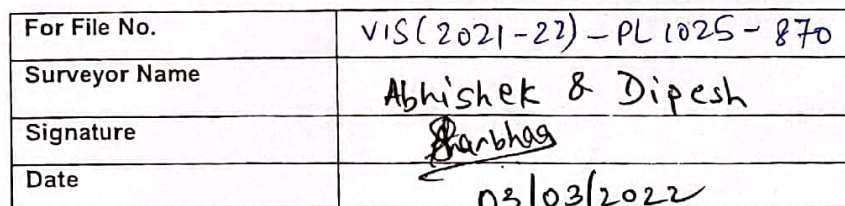 For File No. VIS(2021-22)-PL1025-870
Surveyor Name Abhishek & Dipesh
Signature
Date 03/03/2022